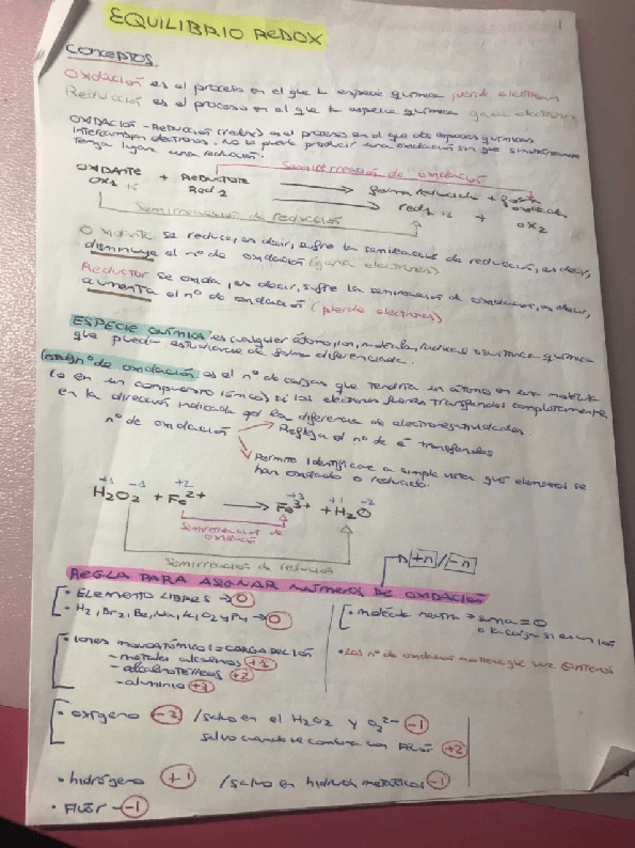 EQUILIBRIO REDOX
CONCEPTOS
Oxidación es el proceso en el que la especie química pierde electrones
Reducción es el proceso en el que la especie química gana electrones
OXIDACIÓN-REDUCCIÓN (redox) es el proceso en el que dos especies químicas
intercambian electrones. No se puede producir una oxidación sin que simultáneamente
tenga lugar una reducción.
Semirreacción de oxidación
OXIDANTE + REDUCTOR → forma reducida + forma oxidada
OX1 + Red 2 → red1 + ox2
Semirreacción de reducción
Oxidante se reduce, es decir, sufre la semirreacción de reducción, es decir,
disminuye el nº de oxidación (gana electrones)
Reductor se oxida, es decir, sufre la semirreacción de oxidación, es decir,
aumenta el nº de oxidación (pierde electrones)
ESPECIE QUÍMICA es cualquier átomo, ion, molécula, radical o sustancia química
que pueda estudiarse de forma diferenciada.
nº de oxidación es el nº de cargas que tendría un átomo en una molécula
(o en un compuesto iónico) si los electrones fueran transferidos completamente
en la dirección indicada por la diferencia de electronegatividades.
nº de oxidación → Refleja el nº de e⁻ transferidos
→ Permite identificar a simple vista qué elementos se
han oxidado o reducido.
+1 -1 +2 +3 +1 -2
H2O2 + Fe2+ → Fe3+ + H2O
Semirreacción de oxidación
Semirreacción de reducción
+n / -n
REGLA PARA ASIGNAR NÚMEROS DE OXIDACIÓN
• ELEMENTO LIBRES → 0
• H2, Br2, Be, Na, K, O2 y P4 → 0
• molécula neutra → suma = 0
o la carga si es un ión
• Iones monoatómicos = CARGA DEL IÓN
- metales alcalinos +1
- alcalinotérreos +2
- aluminio +3
• oxígeno -2 / salvo en el H2O2 y O2²⁻ -1
salvo cuando se combina con Flúor +2
• hidrógeno +1 / salvo en hidruros metálicos -1
• Flúor -1